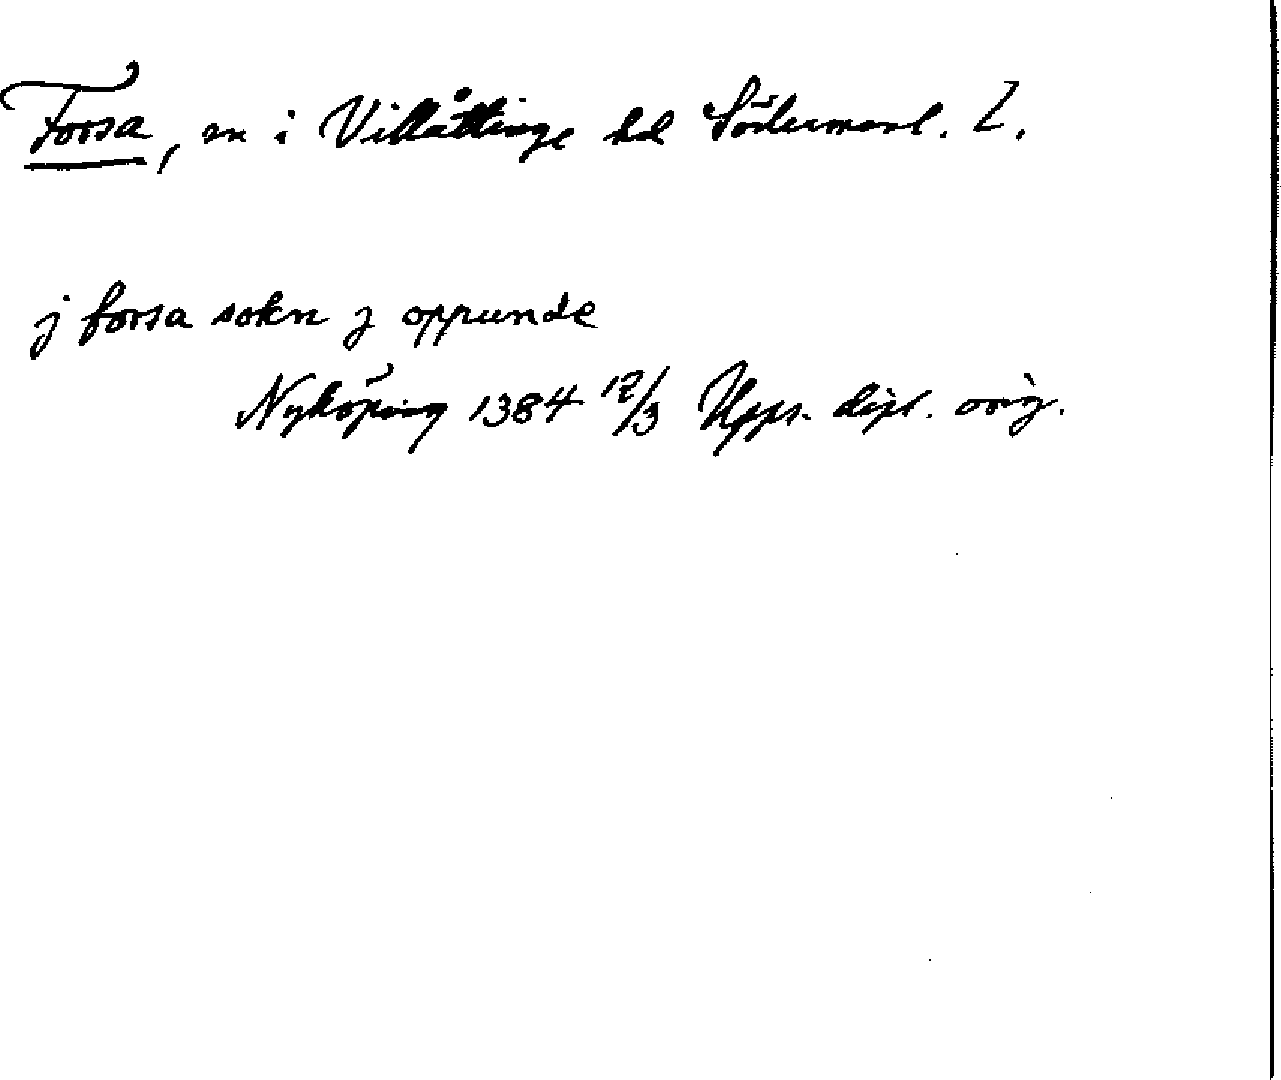 Forsa, sn i Villåttinge hd Södermanl. L.
j forsa sokn j oppunde
Nyköping 1384 12/3 Upps. dipl. orig.